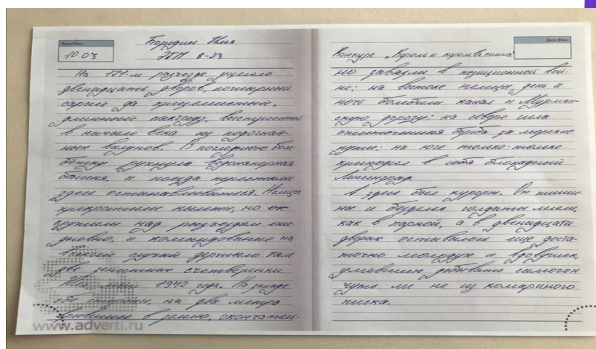 10.03
Бородин Илья
8-23
На 171-м разъезде уцелело
двенадцать дворов, пожарный
сарай да приземистый,
длинный пакгауз, выстроенный
в начале века из подогнан-
ных валунов. В последнюю бом-
бежку рухнула водонапорная
башня, и поезда перестали
здесь останавливаться. Немцы
прекратили налеты, но
кружили над разъездом еже-
дневно, и командование на
всякий случай держало там
две зенитные счетверенки.
Шел май 1942 года. На западе
обе стороны, на два метра
в землю, окончатель-
www.adverti.ru
Конкурс "Короли и
но завязли в позиционной вой-
не; на востоке немцы день и
ночь бомбили канал и Мурман-
скую дорогу; на севере шла
ожесточенная борьба за морские
пути; на юге только-только
приходил в себя блокадный
Ленинград.
А здесь был курорт. От тиши-
ны и безделья солдаты млели,
как в парной, а в двенадцати
дворах оставалось еще доста-
точно молодух и вдовушек,
умевших добывать самогон
чуть ли не из комариного
писка.